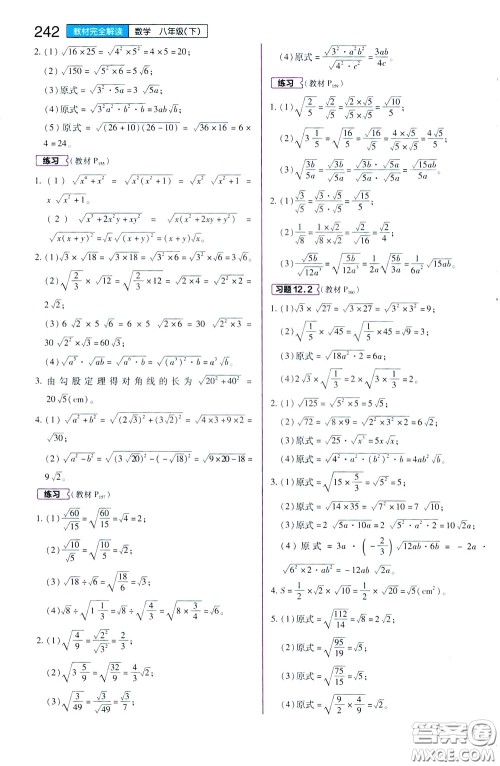 242 教材完全解读 数学 八年级(下)
2. (1) √(16×25) = √(4²×5²) = 4×5 = 20;
(2) √150 = √(5²×6) = 5√6;
(3) 原式 = √(3²·5a) = 3√(5a)。
(4) 原式 = √(3²a²·b²·b) = 3ab√b;
(5) 原式 = √((26+10)(26−10)) = √(36×16) = 6×
4 = 24。
练习 (教材P
= √(x²(x²+1)) = √x² √(x²+1) =
x √(x²+1)。
(2) √(x³+2x²y+xy²) = √(x(x²+2xy+y²)) =
√(x(x+y)²) = √x √((x+y)²) = (x+y)√x。
2. (1) √3 × √18 = √(3×18) = √(3²×6) = 3√6;
(2) √(2/3) × √12 = √(2/3 × 12) = √(2×4) =
2√2;
(3) 6√2 × 5√6 = 6×5 √(2×6) = 30×
2√3 = 60√3;
(4)
3. 由勾股定理得对角线的长为 √(20²+40²) =
20√5(cm)。
4. (1) √(a²+b²) = √((2√3)²+(3√2)²) = √(4×3+9×2) =
√30;
(2) √(a²−b²) = √((3√20)²−(−√18)²) = √(9×20−18) =
9√2。
练习 (教材P
1. (1) √60/√15 = √(60/15) = √4 = 2;
(2) √10/√5 = √(10/5) = √2;
(3) √18÷√6 = √(18/6) = √3;
(4) √8÷√(1 1/3) = √8÷√(4/3) = √(8×3/4) = √6。
2. (1) √(4/9) = √2²/√3² = 2/3;
(2)
(3) √(3/49) = √3/√49 = √3/7。
(4) 原式 = √(3²·a²·b²)/√(4²·c²) = 3ab/4c。
练习 (教材P
1. (1) √(2/5) = √2/√5 = (√2×√5)/(√5×√5) = √10/5;
(2) √(3 1/5) = √(16/5) = √16/√5 = (√16×√5)/(√5×√5) = 4√5/5;
(3) √(3b/5a) = √3b/√5a = (√3b·√5a)/(√5a·√5a) = √15ab/5a。
2. (1) √3/√5 = (√3×√5)/(√5×√5) = √15/5;
(2) 1/√8 = (1×√8)/(√8×√8) = √8/8 = 2√2/8 = √2/4;
(3)
习题12.2 (教材P
1. (1) √3×√27 = √(3×27) = √(3²×3²) = 9;
(2) √(1/5)×√45 = √(1/5×45) = √9 = 3;
(3) 原式 = √(18a²·2) = 6a;
(4)
2. (1) √125 = √(5²×5) = 5√5;
(2) √72 = √(8×9) = √(2²×3²×2) = 6√2;
(3) 原式 = √25·√x²·√x = 5x√x;
(4) 原式 = √(4²·a²·(b²)²·b) = 4ab²√b。
3. (1) √15×√(5/3) = √(15×5/3) = 5;
(2) √14×√35 = √(14×35) = √(7²×2×5) = 7√10;
(3) 原式 = 2√(5a·10a) = 2√(5²·a²·2) = 10a√2;
(4) 原式 = 3a·(−2/3)√(12ab·6b) = −2a·
√(6²×2·ab²) = −12ab√(2a)。
4. S = 1/2×√2×√20 = 1/2×2√
5. (1) 原式 = √(112/14) = √8 = 2√2;
(2) 原式 = √(95/19) = √5;
(3) 原式 = √(75/15) = √5;
(4) 原式 = √(9/2×4/9) = √2。
答案圈
MXQE.COM